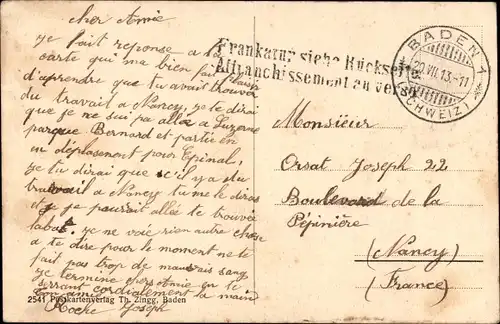 cher Amie
je fait response a la
carte qui ma bien fait plaisir
d'aprendre que tu avait trouvé
du travail a Nancy je te dirai
que je ne sui pas allé a Luzerne
parque Bernard et partie en
en déplasement pour Epinal,
je tu dirai que s'il y a du
travail a Nancy tu me le diras
je pourrait allée te trouvée
labas. je ne voie rien autre chose
a te dire pour le moment ne te
fait pas trop de mauvais sang
je termine chers Amie en te
serrant cordialement la main
ton ami
Roche Joseph
2541 Postkartenverlag Th. Zingg, Baden
Frankatur siehe Rückseite
Affranchissement au verso
BADEN 1
20.VII.13.-11
(SCHWEIZ)
Monsieur
Orsat Joseph 22
Boulevard de la
Pépinière
(Nancy)
(France)